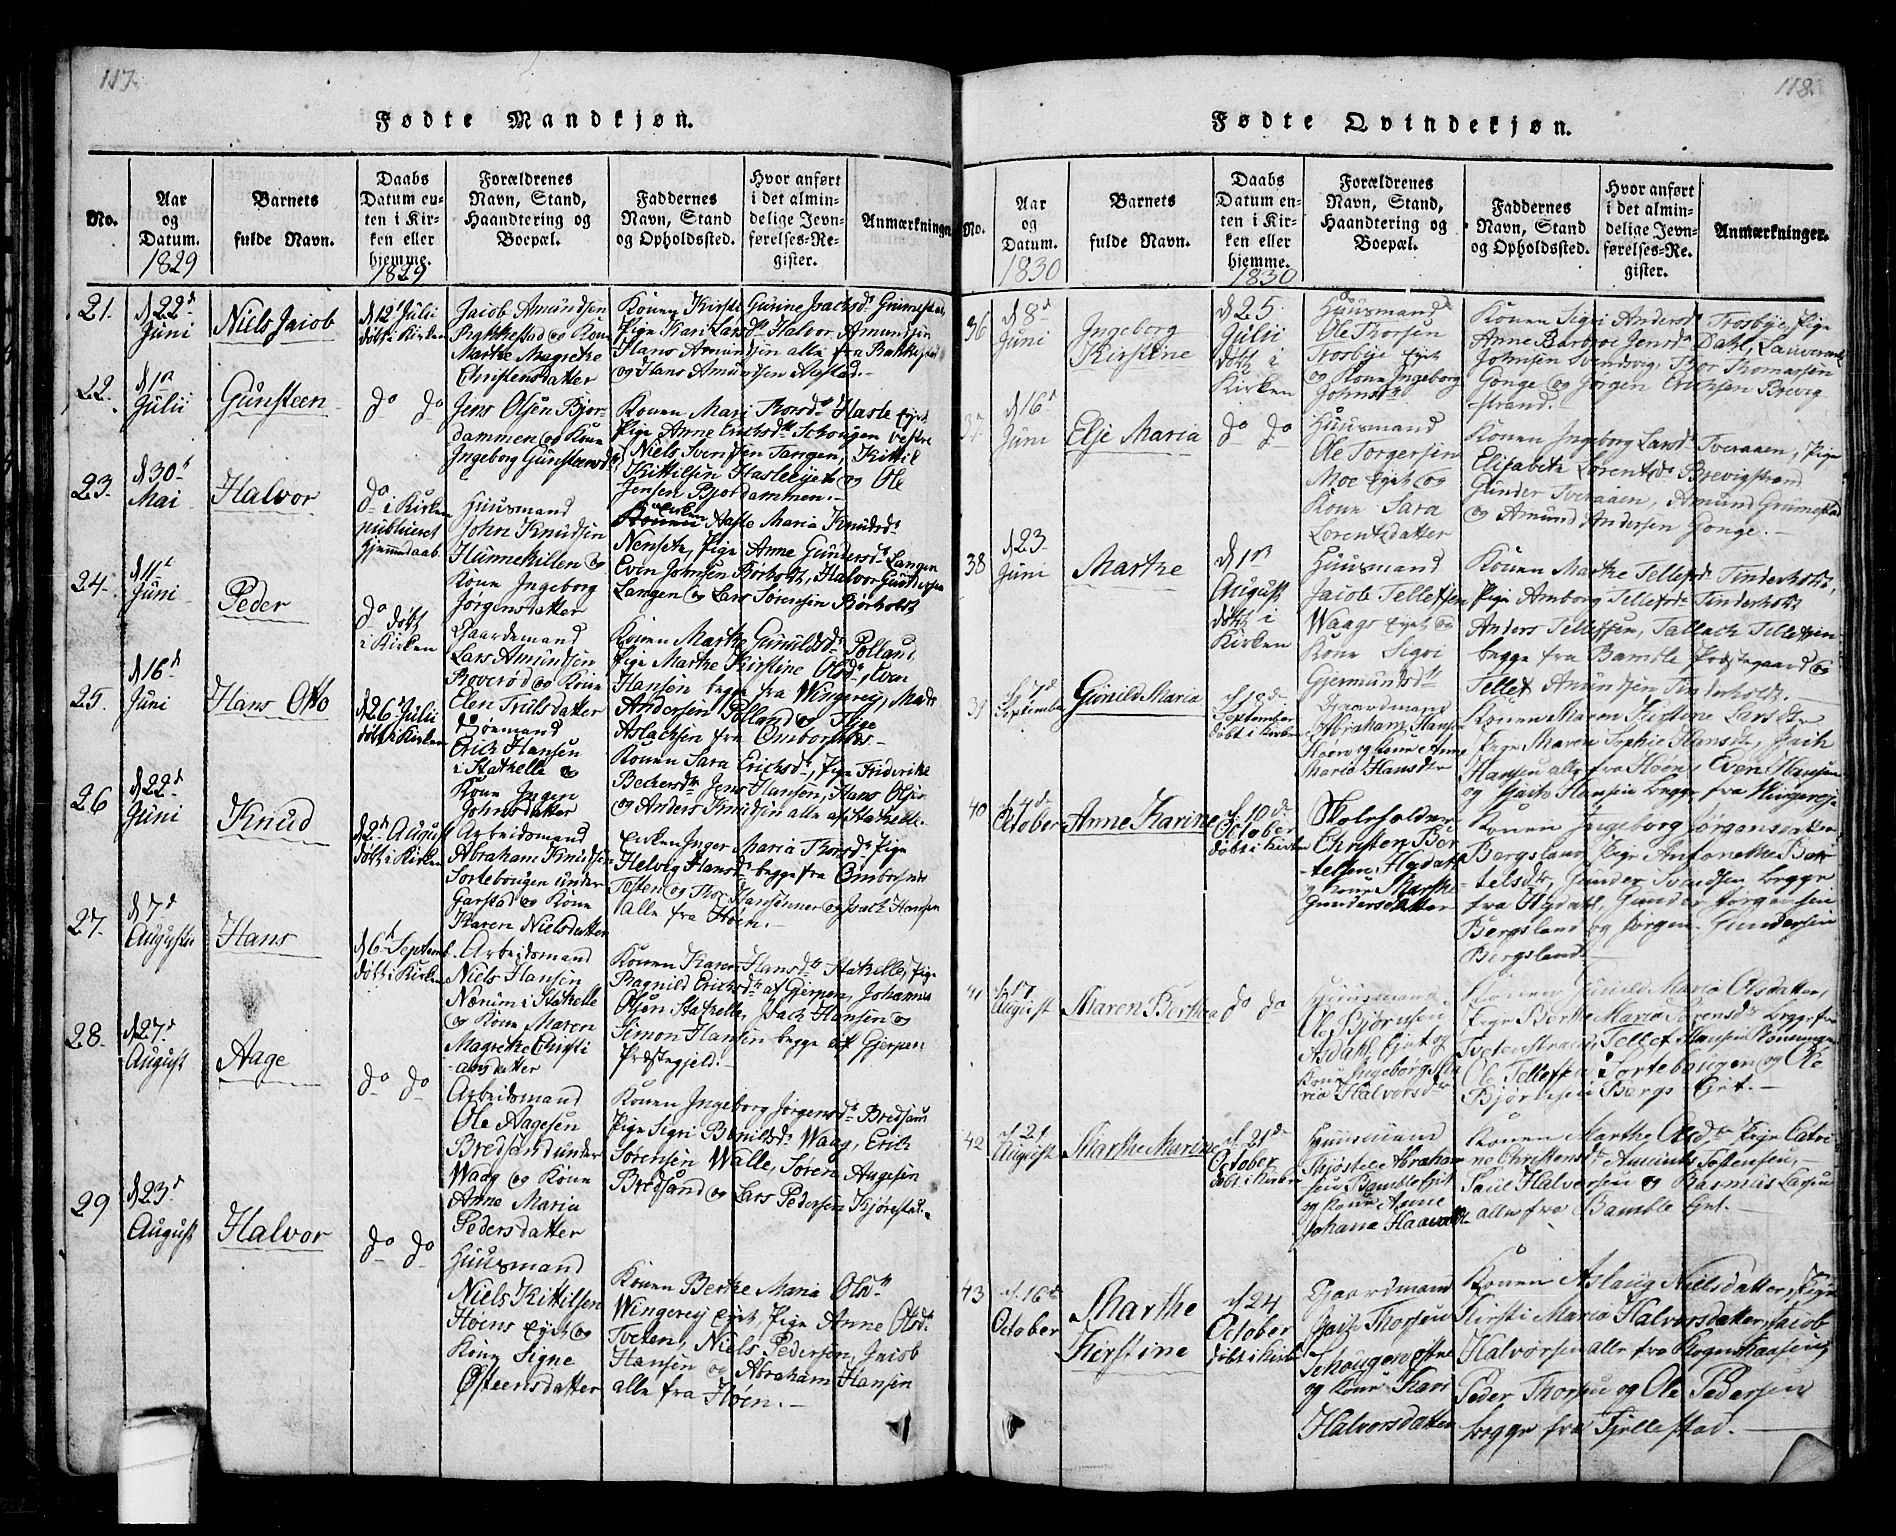 117.
Fødte Mandkjøn.
No.
Aar
og
Datum.
1829
Barnets
fulde Navn.
Daabs
Datum en-
ten i Kir-
ken eller
hjemme.
1829
Forældrenes
Navn, Stand,
Haandtering og
Boepæl.
Faddernes
Navn, Stand
og Opholdssted.
Hvor anført
i det almin-
delige Jevn-
førelses-Re-
gister.
Anmærkninge
21.
d 22d
Juni
Niels Jacob
d 12t Julii
døbt i Kirken
Jacob Amundsen
Rakkestad og Kone
Marthe Magrethe
Christensdatter
Konen Kirsti Gurine Isachsdr Grimestad,
Pige Kari Larsdtr Halvor Amundsen
Hans Amundsen alle fra
og Hans Amundsen
22.
d 1ste
Julii
Gunsteen
do do
Jens Olsen Bjor-
dammen og Kone
Ingeborg Gunsteensdr
Konen Mari Thorsdr Hasle Eyet
Pige Anne Ericksdtr Schougen vestre
Niels Svensen Tangen, Kittil
Kittilsen Hasleeyet og Ole
Jensen Bjordammen.-
23.
d 30t
Mai
Halvor
do i Kirken
publiceret
hjemmedaab.
Huusmand
John Knudsen
Hunnekillen og
Kone Ingeborg
Jørgensdatter
Enken Aasle Maria Knudsdr
Nenseth, Pige Anne Gundersdr Langen
Even Johnsen Børholt, Halvor Gundersen
Langen og Lars Sørensen Børholt
24.
d 11te
Juni
Peder
do døbt
i Kirken
Gaardemand
Lars Amundsen
Roverød og Kone
Elen Trulsdatter
Konen Marthe Gunildsdr Polland
Pige Marthe Kirstine Olsdr, Even
Hansen begge fra Wingerej, Mads
Andersen Polland og Tyge
Aslachsen fra Omborsnes-
25.
d 16d
Juni
Hans Otto
d 26t Julii
døbt i Kirken
Søemand
Erick Hansen
i Stathelle og
Kone Ingen
Johnsdatter
Konen Sara Ericksdr, Pige Friderike
Beckersdtr Jens Hansen, Hans Olsen
og Anders Knudsen alle af Stathelle.
26
d 22d
Juni
Knud
d 2d August
døbt i Kirken
Arbeidsmand
Abraham Knudsen
Sortebougen under
Garstad og Kone
Karen Nielsdatter
Enken Inger Maria Thorsdr Pige
Helvig Hansdr begge fra Ombornes
Tosten og Thor Hansønner og Isach Hansen
alle fra Høen.-
27.
d 7d
Augusti
Hans
d 6t Septemb.
døbt i Kirken
Arbeidsmand
Niels Hansen
Nænim i Stathelle
og Kone Maren
Magrethe Christi
-ansdatter
Konen Karen Hansdtr Stathelle, Pige
Ragnild Ericksdtr af Gjerpen, Johannes
Olsen Stathelle, Isach Hansen og
Simon Hansen begge af Gjerpen
Præstegjeld.-
28.
d 27d
August
Aage
do do
Arbeidsmand
Ole Aagesen
Bredsand under
Waag og Kone
Anne Maria
Pedersdatter
Konen Ingeborg Jørgensdr Bredsand
Pige Sigri Bonildsdr Waag, Erick
Sørensen Walle, Søren Aagesen
Bredsand og Lars Pedersen Kjørestad.-
29
d 23d
August
Halvor
do do
Huusmand
Niels Kittilsen
Hoens Eyet og
Kone Signe
Østeensdatter
Konen Berthe Maria Olsdtr
Wingerej Eyet, Pige Anne Olsdr
Tveten, Niels Pedersen, Jacob
Hansen og Abraham Hansen
alle fra Høen.-
118.
Fødte Qvindekjøn.
No.
Aar
og
Datum.
1830
Barnets
fulde Navn.
Daabs
Datum en-
ten i Kir-
ken eller
hjemme.
1830
Forældrenes
Navn, Stand,
Haandtering og
Boepæl.
Faddernes
Navn, Stand
og Opholdssted.
Hvor anført
i det almin-
delige Jevn-
førelses-Re-
gister.
Anmærkninger.
36
d 8d
Juni
Ingeborg
Kirstine
d 25.
Julii
døbt i
Kirken
Huusmand
Ole Thorsen
Trosbye Eyet
og Kone Ingeborg
Johnsdtr
Konen Sigri Andersdr Trosbye, Pige
Anne Barbroe Jensdr Dahl, Lauverants
Johnsen Svendsvig, Thor Thomassen
Gonge og Jørgen Ericksen Brevig-
strand.-
37.
d 16d
Juni
Elje Maria
do do
Huusmand
Ole Torgersen
Moe Eyet og
Kone Sara
Lorentsdatter
Konen Ingeborg Larsdr Tveraaen, Pige
Elisabeth Lorentsdr Brevigstrand
Gunder Tveraaen, Amund Grimestad
og Amund Andersen Gonge.-
38
d 23.
Juni
Marthe
d 1ste
August
døbt i
Kirken
Huusmand
Jacob Tellefsen
Waags Eyet og
Kone Sigri
Gjermundsdtr
Konen Marthe Tellefsdr Tinderholt,
Pige Amborg Tellefsdr Tinderholt
Anders Tellefsen, Tallach Tellefsen
begge fra Bamble Præstegaard og
Tellef Amundsen Tinderholt.
39
d 7d
September
Gunild Maria
d 19de
September
døbt i Kirken
Gaardmand
Abraham Hansen
Hoen og Kone Anne
Maria Hansdtr
Konen Maren Kirstine Larsdtr
Pige Maren Sophie Hansdtr, Isach
Hansen alle fra Hoen, Even Hansen
og Isach Hansen begge fra Wingereje
40
d 4de
October
Anne Karine
d. 10de
October
døbt i Kirken
Skoleholder
Christen Ber-
telsen Hydal
og Kone Marthe
Gundersdatter
Konen Ingeborg Jørgensdatter
Bergsland, Pige Antonethe Ber-
telsdtr, Gunder Svendsen begge
fra Hydal, Gunder Jørgensen
Bergsland og Jørgen Gundersen
Bergsland.
41
August
Maren Berthea
do do
Huusmand
Ole Bjørnsen
Asdahl Eiet og
Kone Ingeborg Ma-
ria Halvorsdtr
Konen Gunild Maria Olsdatter,
Pige Berthe Maria Sørensdr begge fra
Tellef Hansen
Ole Tellefsen Sortebougen og Ole
Bjørnsen Bergs Eiet.-
42
d 21
August
Marthe Marine
d. 21de
October
døbt i Kirken
Huusmand
Thjøstele Abraham-
sen Bamble Eiet
og Kone Anne
Johane Haavaldsdr
Konen Marthe Olsdtr Pige Catri-
ne Christensdtr Amund Tostensen,
Poul Halvorsen og Rasmus Larsen
alle fra Bamble Eiet.-
43
d. 16de
October
Marthe
Kirstine
d 24
October
døbt i Kirken
Gaardmand
Isach Thorsen
Schougen østre
og Kone Kari
Halvorsdatter
Konen Aslaug Nielsdatter, Pige
Kirsti Maria Halvorsdatter, Jacob
Halvorsen alle fra
Peder Thorsen og Ole Pedersen
begge fra Fjellestad.-